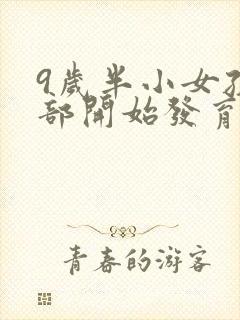 9歲半小女孩
部開始發育
青春的游客